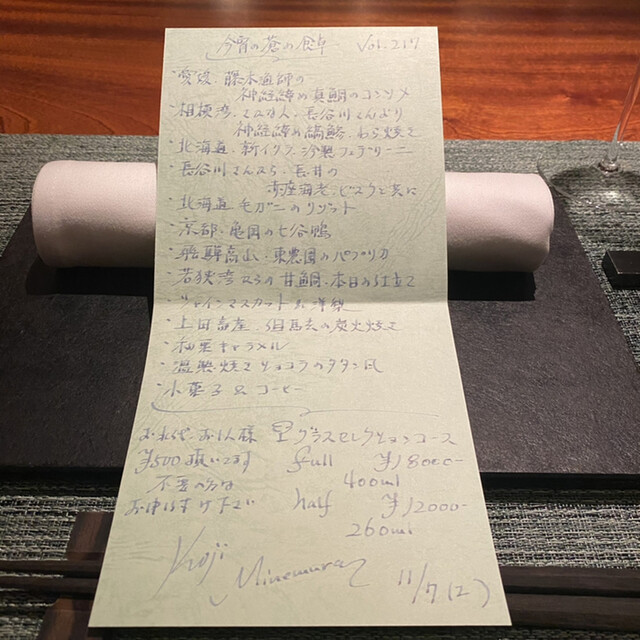 今宵の蒼の食卓 Vol.217
・愛媛、藤本遊師の
神経締め真鯛のコンソメ
・相模湾、さかな人、長谷川さんより
神経締め縞鯵、わら焼きで
・北海道、新イクラ、冷製フェデリーニ
・長谷川さんから、長井の
海老、ビスクと共に
・北海道 毛ガニのリゾット
・京都、亀岡の七谷鴨
・飛騨高山、東農園のパプリカ
・若狭湾からの甘鯛、本日の仕立て
・シャインマスカット&洋梨
・上田畜産、但馬玄の炭火焼きで
・和栗キャラメル
・温製焼きショコラのタタン風
・小菓子&コーヒー
お水代、お1人様
¥500頂いてます
不要の方は
お申し付け下さい
グラスセレクションコース
full ¥18000-
400ml
half ¥12000-
260ml
Koji
Minemura
11/7(